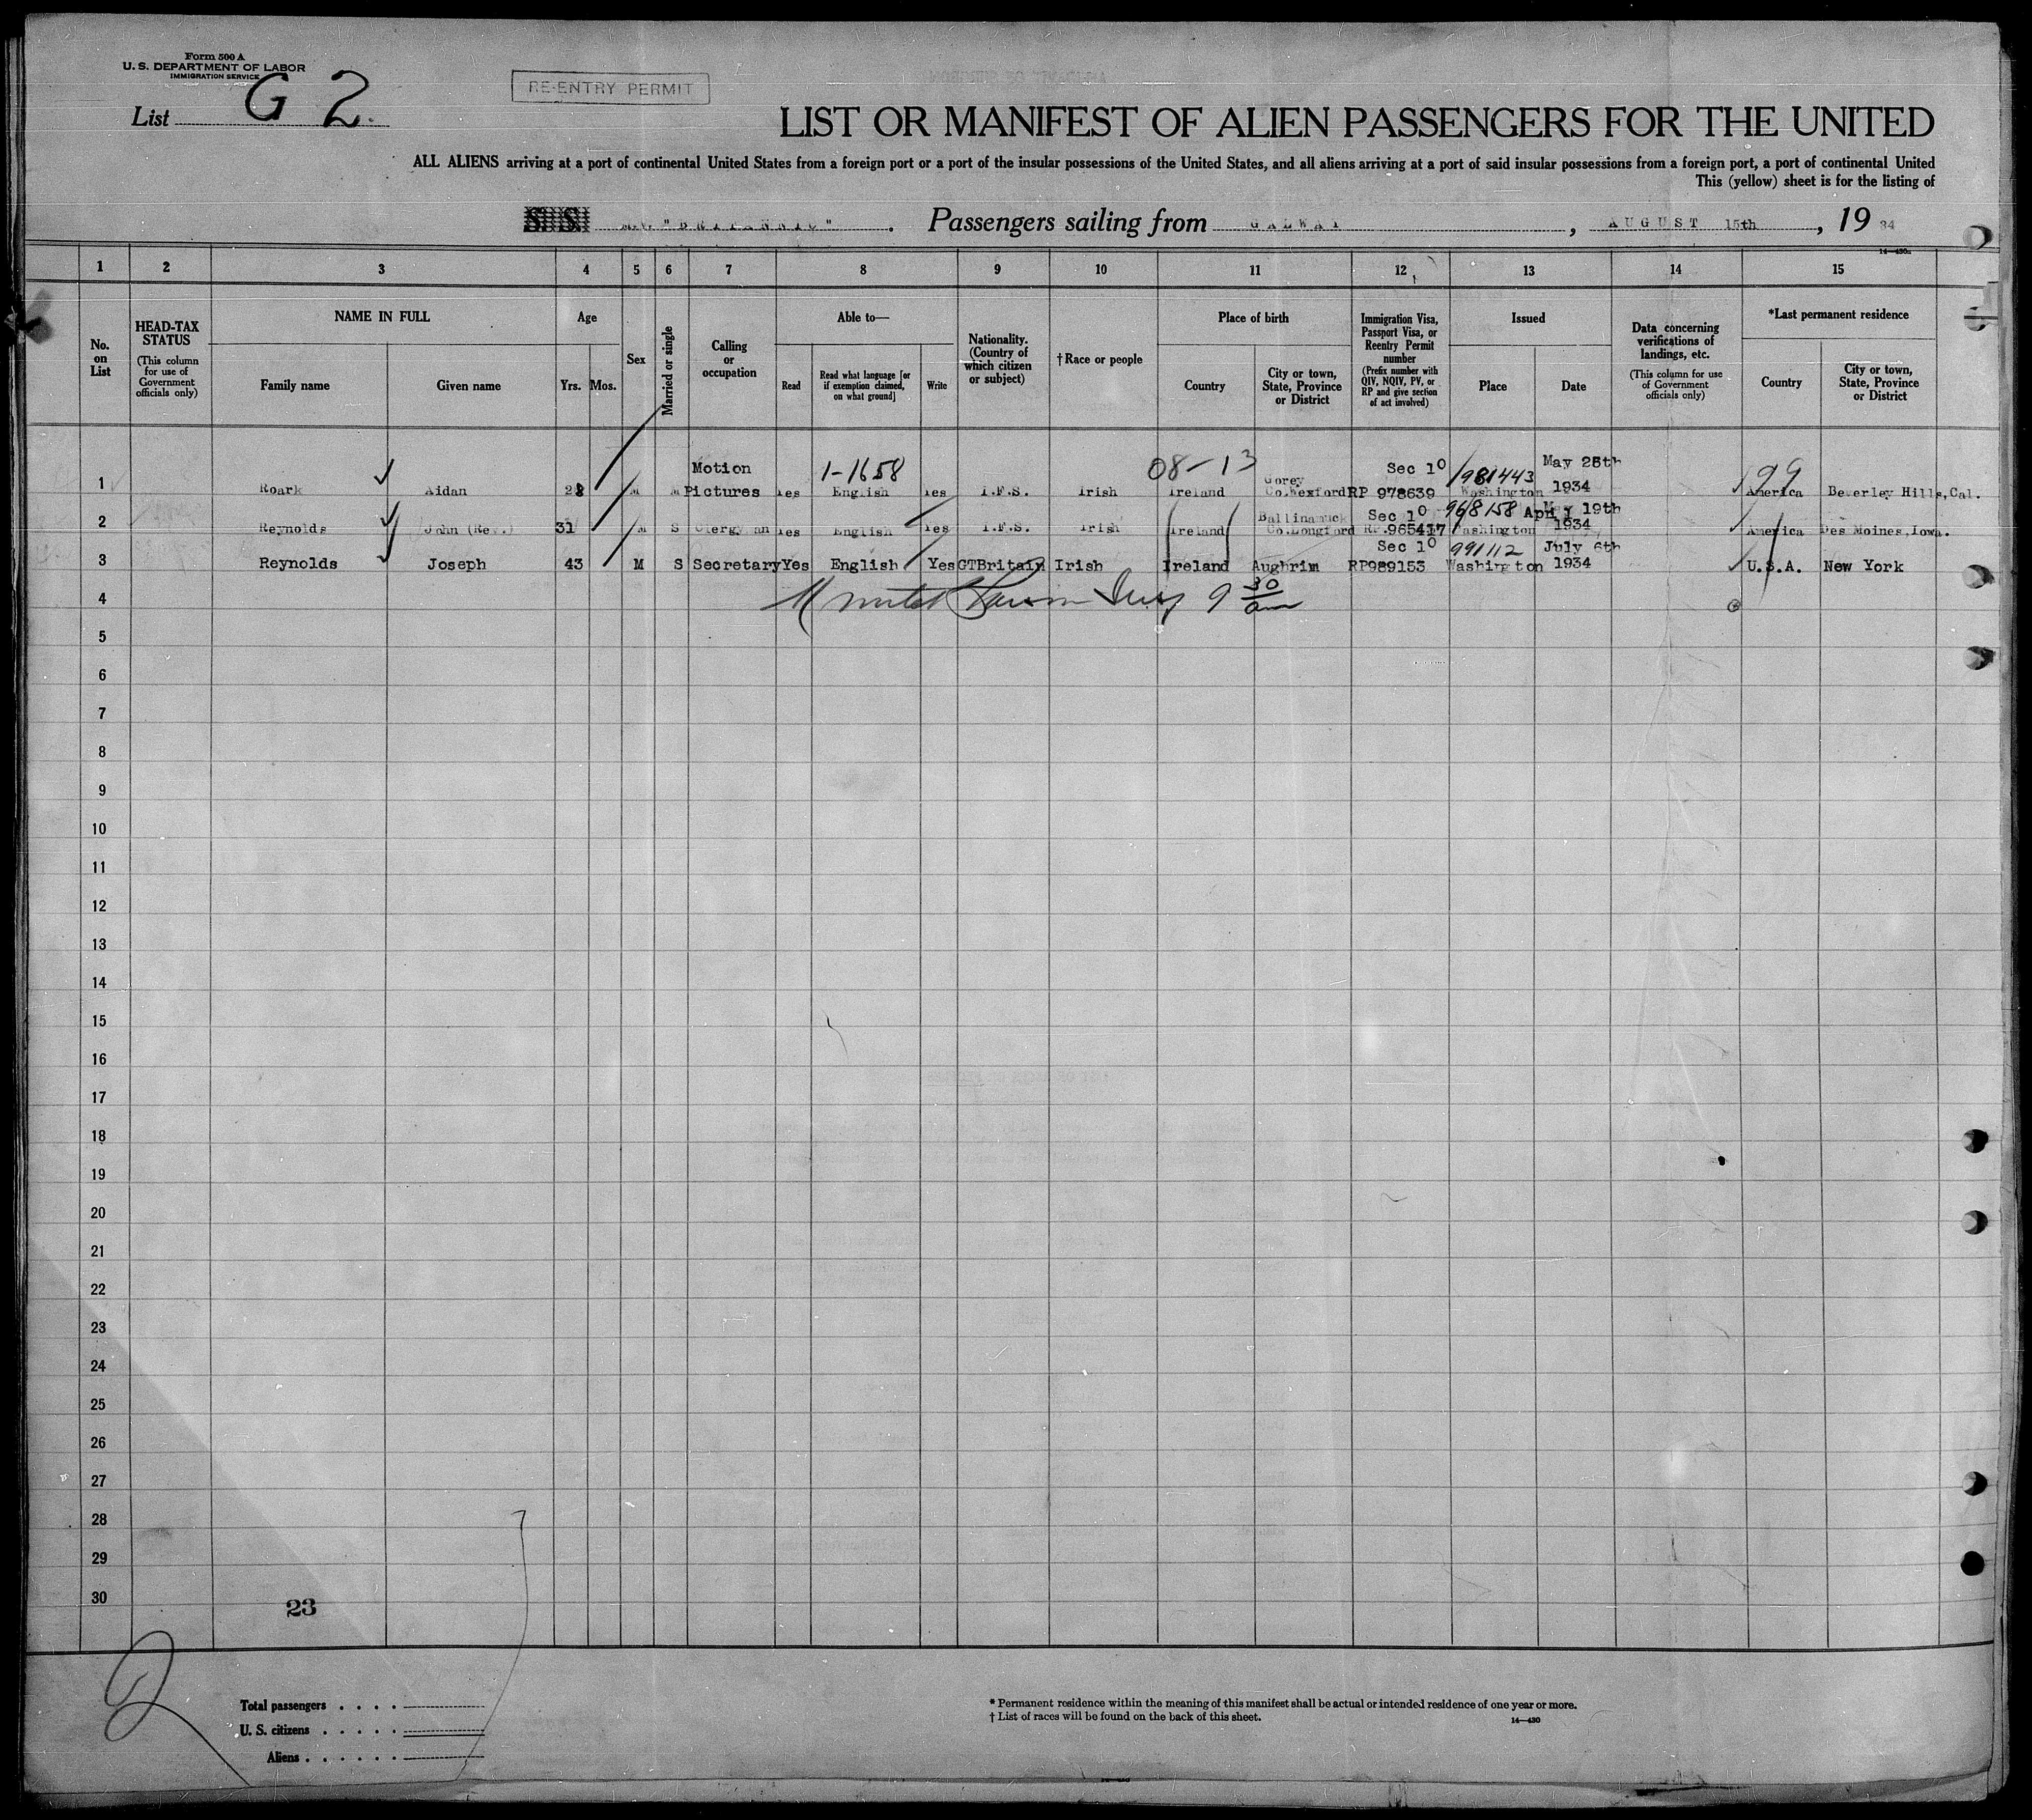 Form 500 A
U. S. DEPARTMENT OF LABOR
IMMIGRATION SERVICE
List G 2.
RE-ENTRY PERMIT
LIST OR MANIFEST OF ALIEN PASSENGERS FOR THE UNITED
ALL ALIENS arriving at a port of continental United States from a foreign port or a port of the insular possessions of the United States, and all aliens arriving at a port of said insular possessions from a foreign port, a port of continental United
This (yellow) sheet is for the listing of
S. S. M.V. "BRITANNIC". Passengers sailing from GALWAY, AUGUST 15th, 19 34
14—430a
1 2 3 4 5 6 7 8 9 10 11 12 13 14 15
No. on List
HEAD-TAX STATUS
(This column for use of Government officials only)
NAME IN FULL
Family name
Given name
Age
Yrs. Mos.
Sex
Married or single
Calling or occupation
Able to—
Read
Read what language [or if exemption claimed, on what ground]
Write
Nationality. (Country of which citizen or subject)
† Race or people
Place of birth
Country
City or town, State, Province or District
Immigration Visa, Passport Visa, or Reentry Permit number
(Prefix number with QIV, NQIV, PV, or RP and give section of act involved)
Issued
Place
Date
Data concerning verifications of landings, etc.
(This column for use of Government officials only)
*Last permanent residence
Country
City or town, State, Province or District
Motion 1-1658 08-13 Gorey Sec 10 1981443 May 28th 99
1 Roark Aidan 28 M M Pictures Yes English Yes I.F.S. Irish Ireland Co.Wexford RP 978639 Washington 1934 America Beverley Hills, Cal.
Ballinamuck Sec 10 968158 19th
2 Reynolds John (Rev.) 31 M S Clergyman Yes English Yes I.F.S. Irish Ireland Co.Longford RP.965417 Washington 1934 America Des Moines, Iowa.
Sec 10 991112 July 6th
3 Reynolds Joseph 43 M S Secretary Yes English Yes GTBritain Irish Ireland Aughrim RP989153 Washington 1934 U.S.A. New York
4 9 30 am
5
6
7
8
9
10
11
12
13
14
15
16
17
18
19
20
21
22
23
24
25
26
27
28
29
30
23
Total passengers . . . .
U. S. citizens . . . . .
Aliens . . . . . .
* Permanent residence within the meaning of this manifest shall be actual or intended residence of one year or more.
† List of races will be found on the back of this sheet.
14—430